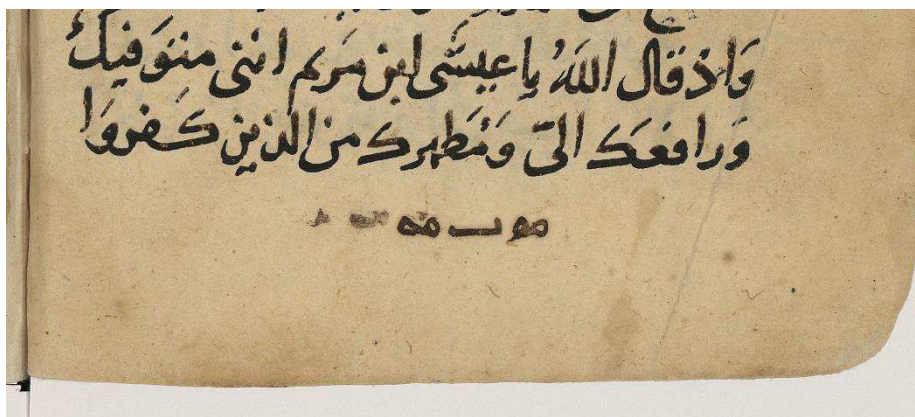 وَاذ قال اللهُ يا عيسَى ابن مَريم اننى متوَفيكَ
وَرافعَكَ الىّ وَمُطَهرك من الذين كَفروَا